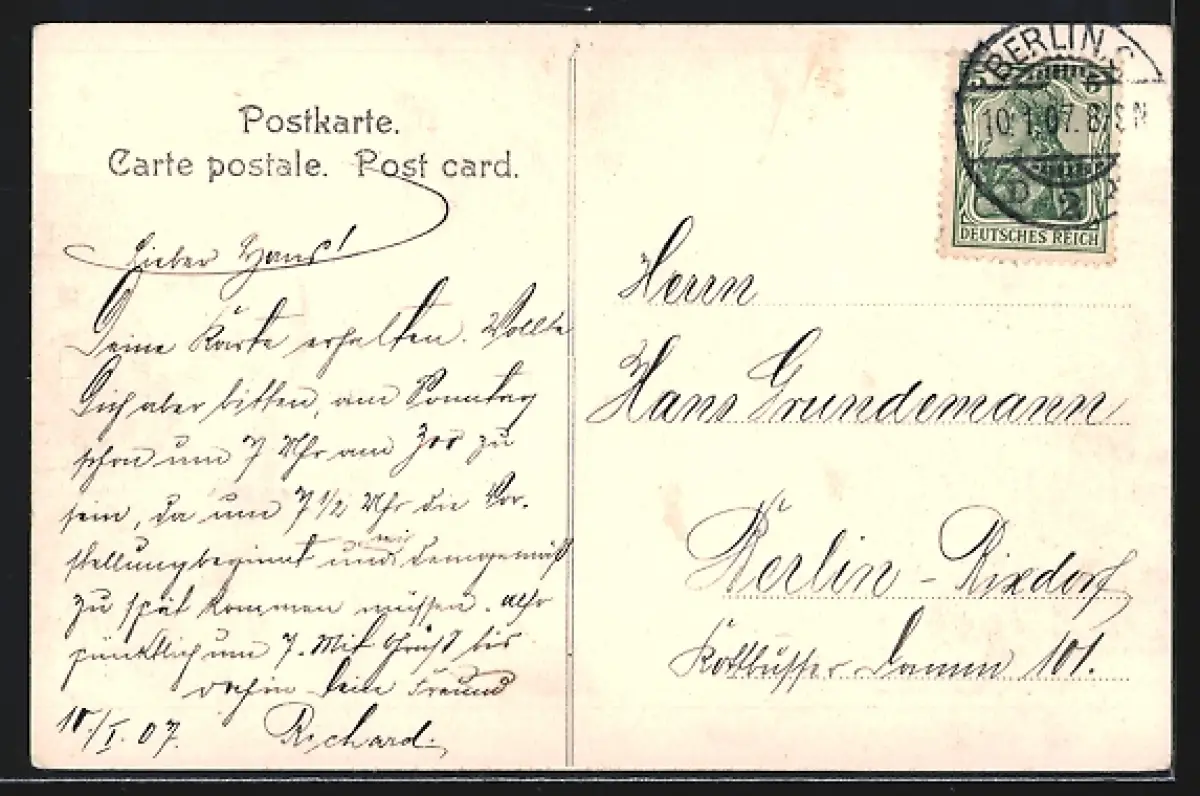 Postkarte.
Carte postale. Post card.
Lieber Hans!
Deine Karte erhalten. Wollte
Dich aber bitten, am Sonntag
schon um 7 Uhr am Zoo zu
sein, da um 7 1/2 Uhr die Vor-
stellung beginnt und wir demgemäß
zu spät kommen müssen. Also
pünktlich um 7. Mit Gruß bis
dahin Dein Freund
10./I.07. Richard.
BERLIN, S.
10.1.07. 8-9N
2
DEUTSCHES REICH
Herrn
Hans Grundemann
Berlin-Rixdorf
Kottbusser Damm 101.